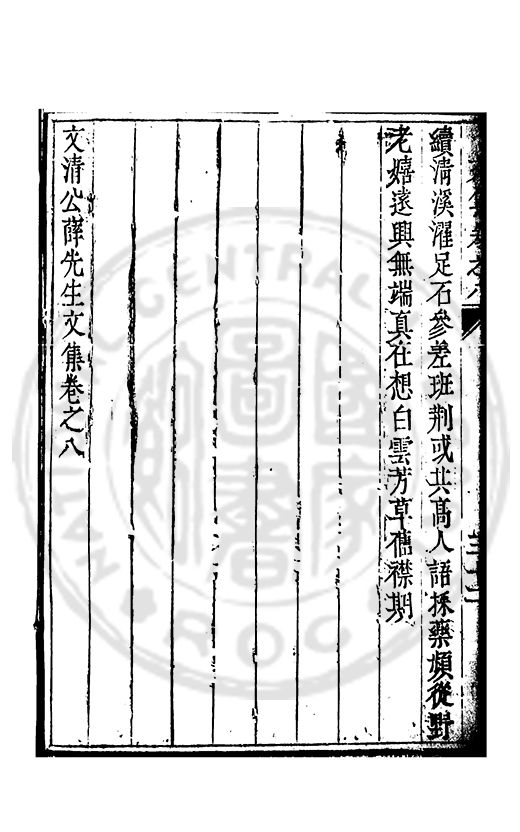 續清溪濯足石參差班荆或共高人語採藥頻從野
老嬉遠興無端真在想白雲芳草舊襟期
文清公薛先生文集卷之八